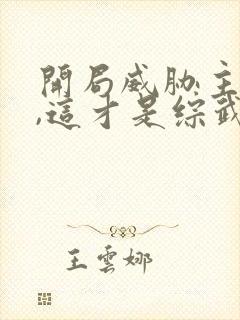 開局威胁主
,這才是綜武
王雲娜